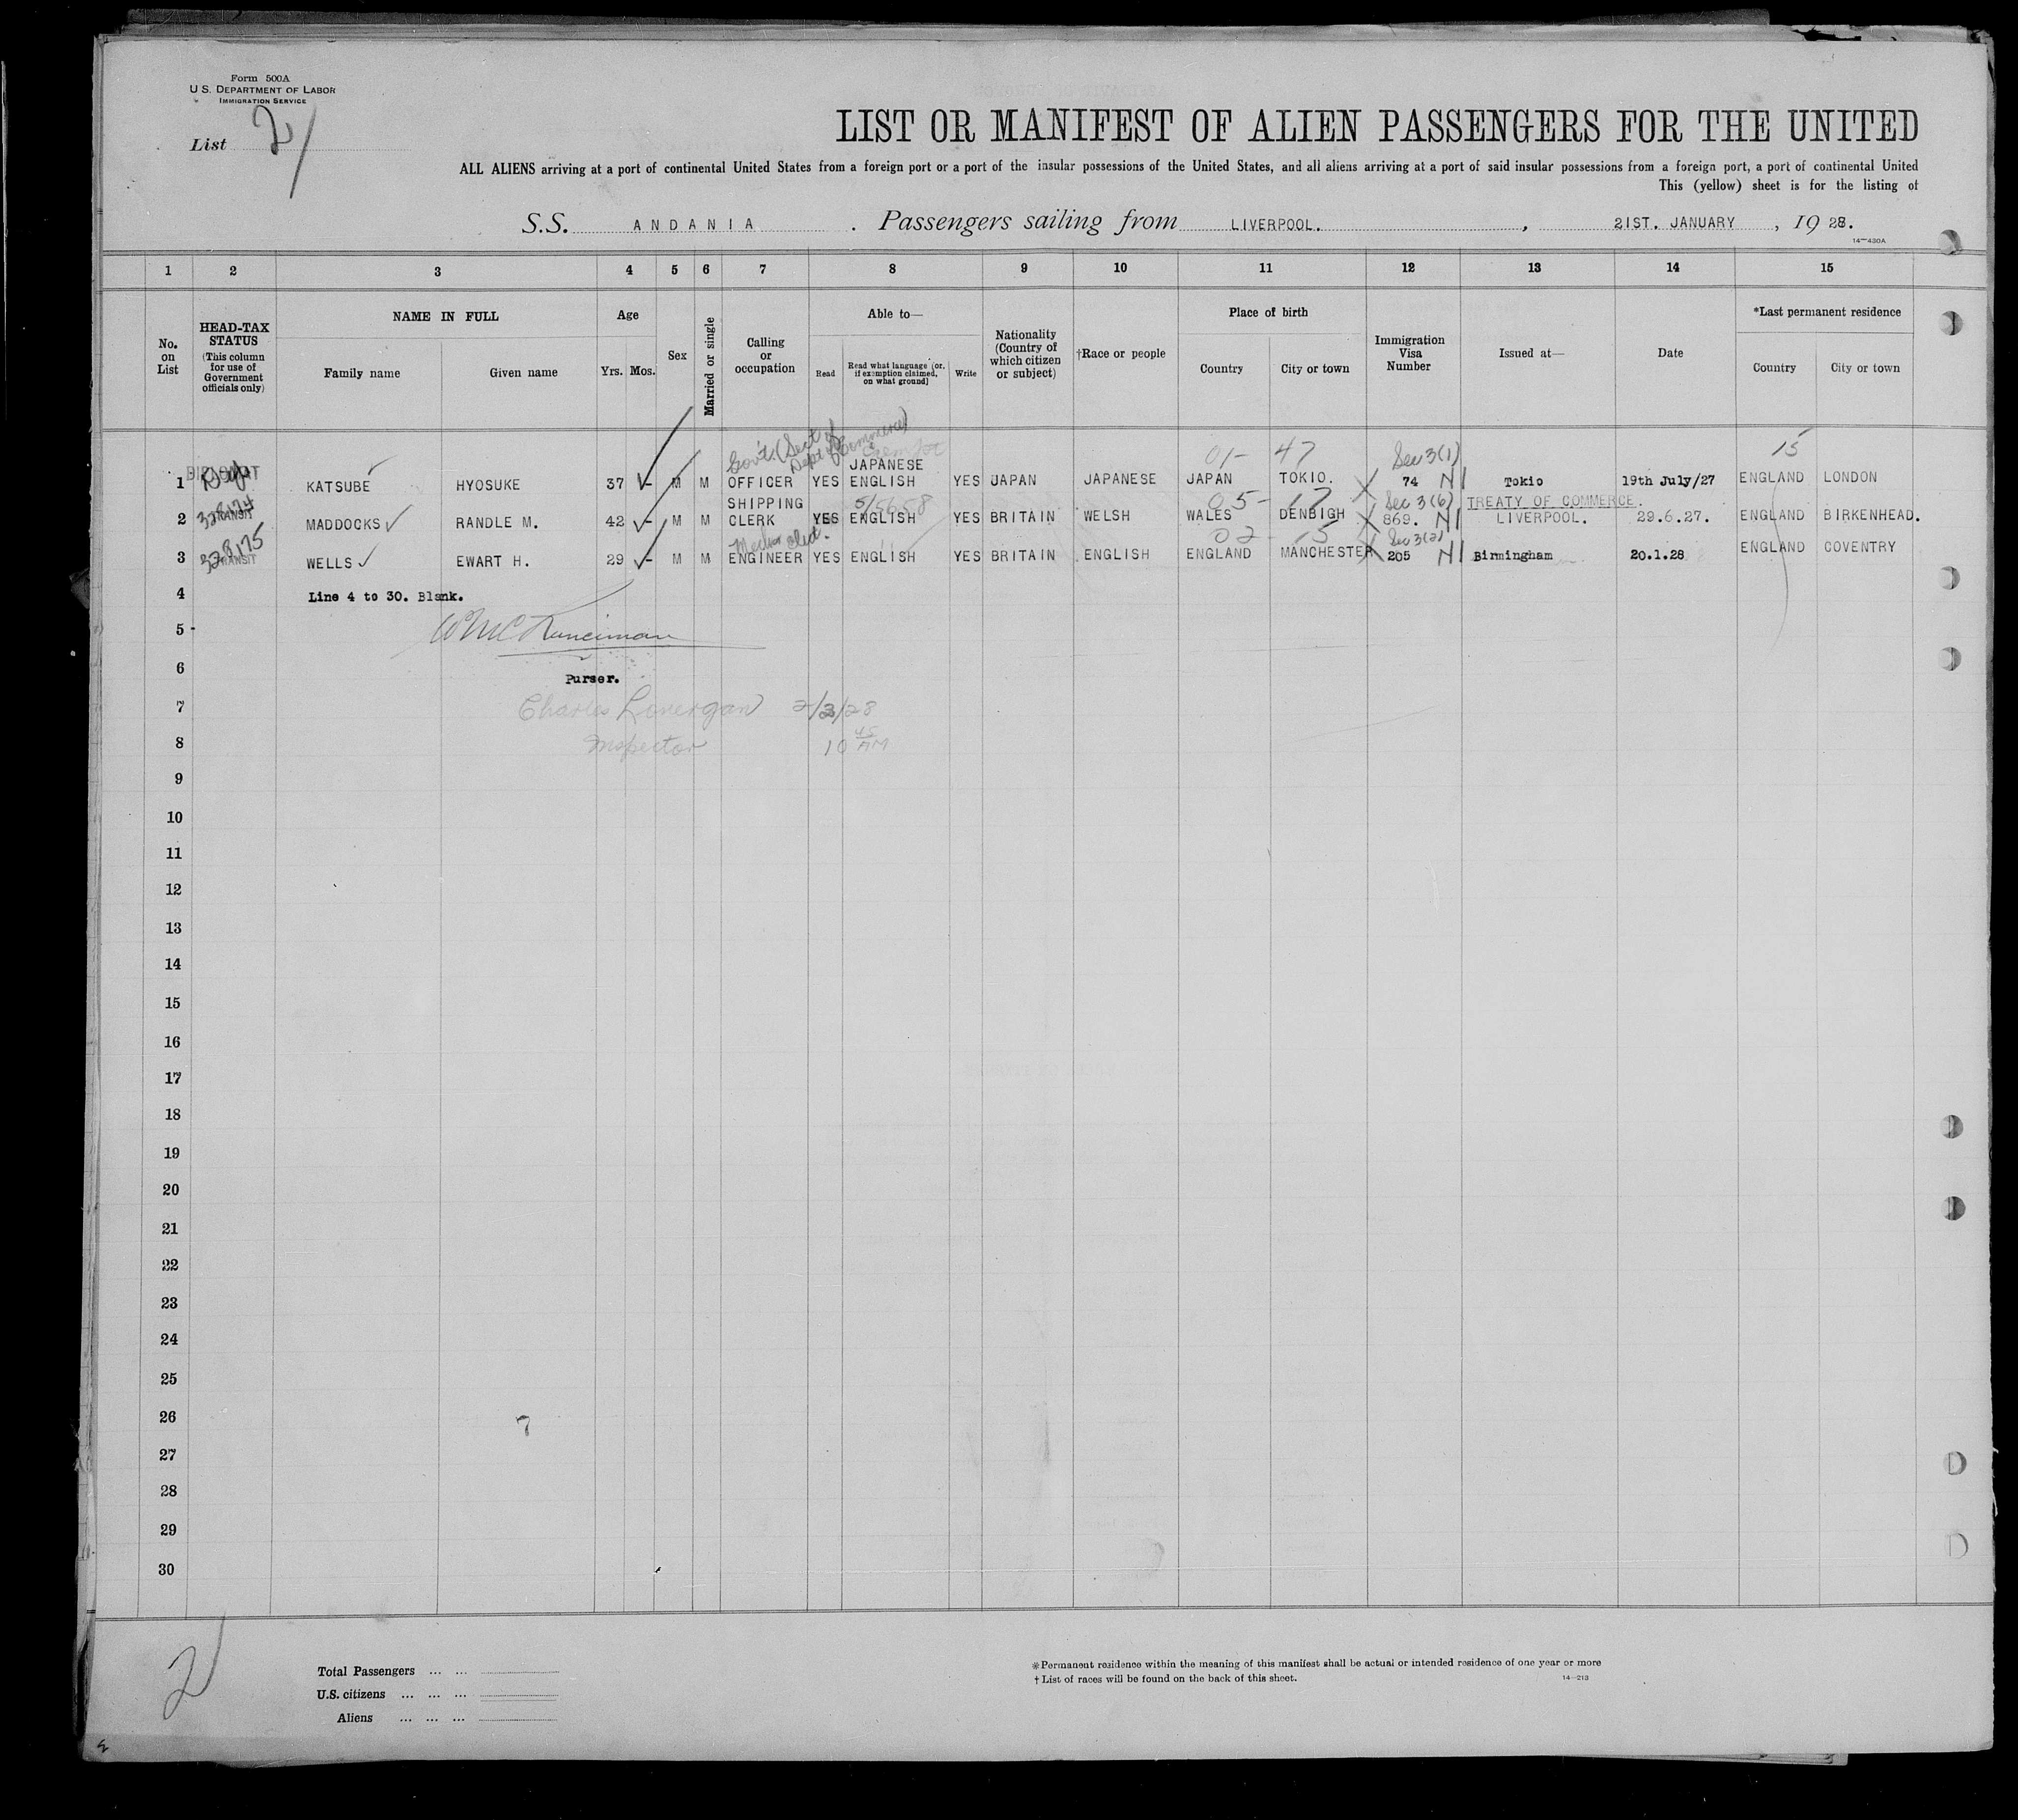 Form 500A
U. S. DEPARTMENT OF LABOR
IMMIGRATION SERVICE
List 2
LIST OR MANIFEST OF ALIEN PASSENGERS FOR THE UNITED
ALL ALIENS arriving at a port of continental United States from a foreign port or a port of the insular possessions of the United States, and all aliens arriving at a port of said insular possessions from a foreign port, a port of continental United
This (yellow) sheet is for the listing of
S.S. ANDANIA . Passengers sailing from LIVERPOOL. , 21ST. JANUARY , 19 28.
14—430A
1 2 3 4 5 6 7 8 9 10 11 12 13 14 15
No. on List
HEAD-TAX STATUS (This column for use of Government officials only)
NAME IN FULL
Family name Given name
Age
Yrs. Mos.
Sex
Married or single
Calling or occupation
Able to—
Read Read what language (or, if exemption claimed, on what ground) Write
Nationality (Country of which citizen or subject)
†Race or people
Place of birth
Country City or town
Immigration Visa Number
Issued at—
Date
*Last permanent residence
Country City or town
Gov't. (Sect of Dept of Commerce)
01- 47 Sec 3(1) 15
JAPANESE
1 DIPLOMAT KATSUBE HYOSUKE 37 - M M OFFICER YES ENGLISH YES JAPAN JAPANESE JAPAN TOKIO. 74 NI Tokio 19th July/27 ENGLAND LONDON
SHIPPING 5/5658 05- 17 Sec 3(6) TREATY OF COMMERCE.
2 328174 TRANSIT MADDOCKS RANDLE M. 42 - M M CLERK YES ENGLISH YES BRITAIN WELSH WALES DENBIGH 869. NI LIVERPOOL. 29.6.27. ENGLAND BIRKENHEAD.
02 - 15 Sec 3(2)
3 328175 TRANSIT WELLS EWART H. 29 - M M ENGINEER YES ENGLISH YES BRITAIN ENGLISH ENGLAND MANCHESTER 205 NI Birmingham 20.1.28 ENGLAND COVENTRY
4 Line 4 to 30. Blank.
5 Wm C Runciman
6 Purser.
7 Charles Lonergan 2/3/28
8 Inspector 10 45 AM
9
10
11
12
13
14
15
16
17
18
19
20
21
22
23
24
25
26 7
27
28
29
30
2
Total Passengers ... ...
U.S. citizens ... ... ...
Aliens ... ... ...
*Permanent residence within the meaning of this manifest shall be actual or intended residence of one year or more
†List of races will be found on the back of this sheet. 14—213